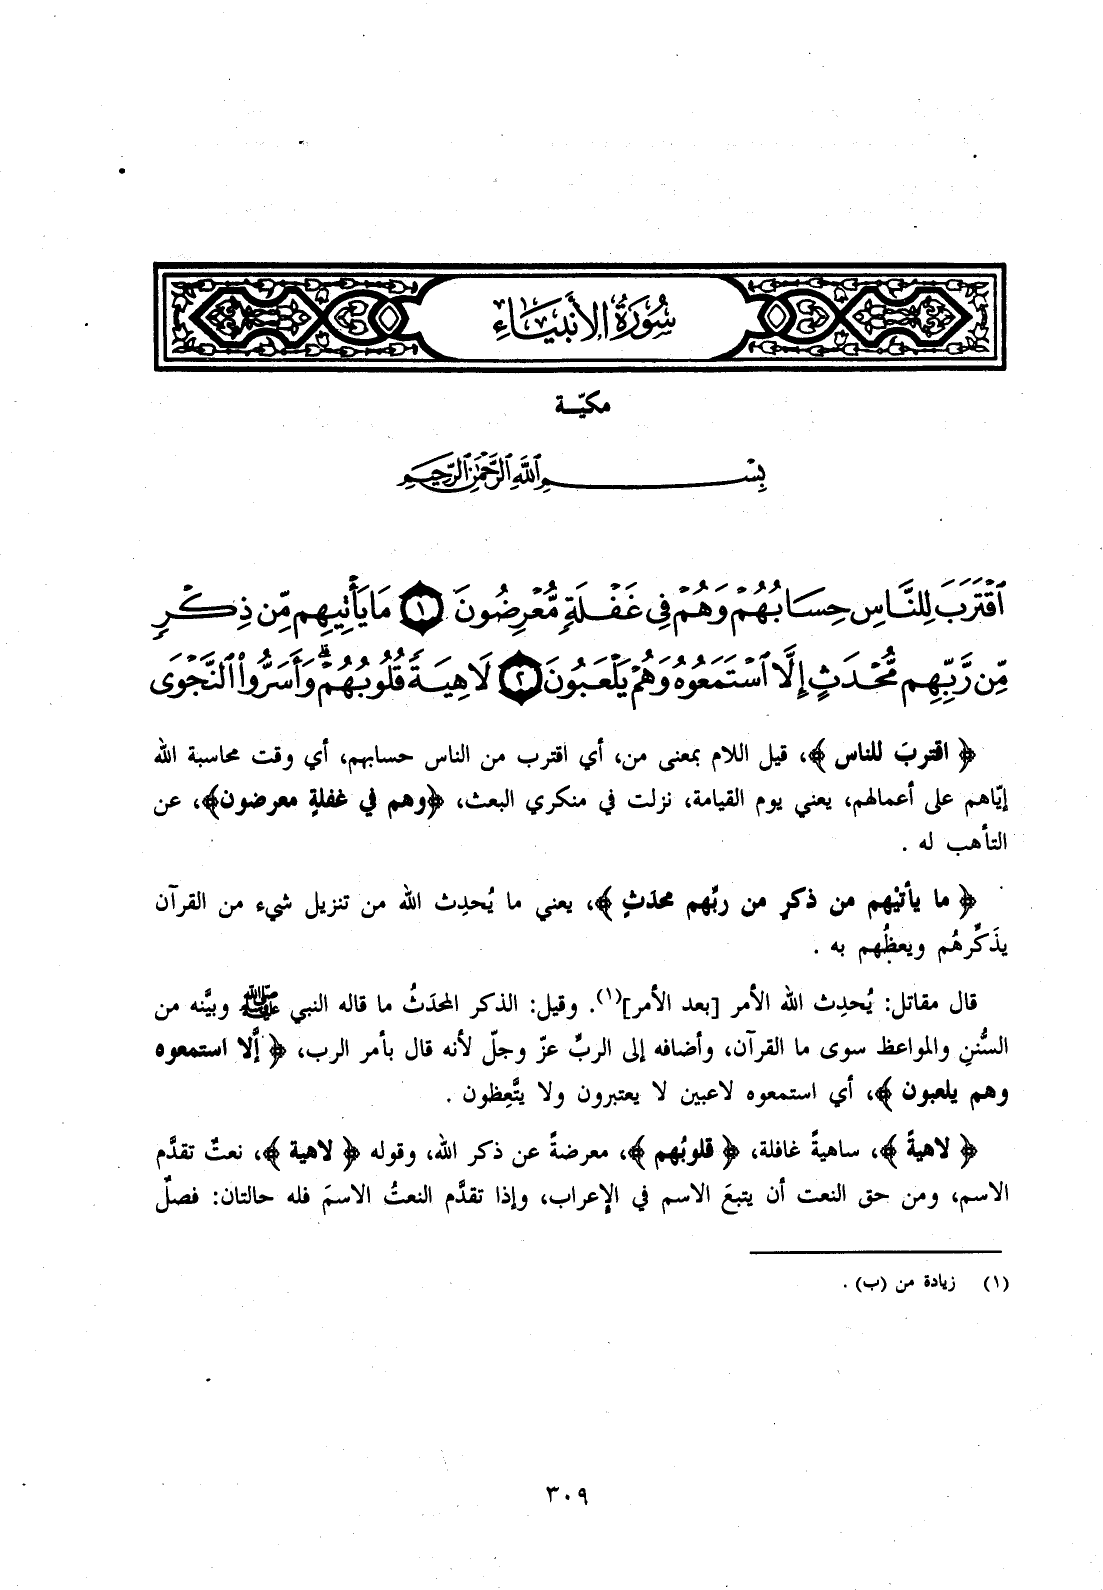 سُورَةُ الأَنبيَاء
مكيّة
بِسْمِ ٱللَّهِ ٱلرَّحْمَٰنِ ٱلرَّحِيمِ
ٱقْتَرَبَ لِلنَّاسِ حِسَابُهُمْ وَهُمْ فِى غَفْلَةٍ مُّعْرِضُونَ ١ مَا يَأْتِيهِم مِّن ذِكْرٍ
مِّن رَّبِّهِم مُّحْدَثٍ إِلَّا ٱسْتَمَعُوهُ وَهُمْ يَلْعَبُونَ ٢ لَاهِيَةً قُلُوبُهُمْ ۗ وَأَسَرُّوا۟ ٱلنَّجْوَى
﴿ اقتربَ للناس ﴾، قيل اللام بمعنى من، أي اقترب من الناس حسابهم، أي وقت محاسبة الله
إيّاهم على أعمالهم، يعني يوم القيامة، نزلت في منكري البعث، ﴿وهم في غفلةٍ معرضون﴾، عن
التأهب له .
﴿ ما يأتيْهم من ذكرٍ من ربِّهم محدَثٍ ﴾، يعني ما يُحدِث الله من تنزيل شيء من القرآن
يذَكِّرهُم ويعظُهم به .
قال مقاتل: يُحدِث الله الأمر [بعد الأمر](١). وقيل: الذكر المحدَثُ ما قاله النبي ﷺ وبيَّنه من
السُّننِ والمواعظ سوى ما القرآن، وأضافه إلى الربِّ عزّ وجلّ لأنه قال بأمر الرب، ﴿ إلَّا استمعوه
وهم يلعبون ﴾، أي استمعوه لاعبين لا يعتبرون ولا يتَّعِظون .
﴿ لاهيةً ﴾، ساهيةً غافلة، ﴿ قلوبُهم ﴾، معرضةً عن ذكر الله، وقوله ﴿ لاهية ﴾، نعتٌ تقدَّم
الاسم، ومن حق النعت أن يتبعَ الاسم في الإعراب، وإذا تقدَّم النعتُ الاسمَ فله حالتان: فصلٌ
(١) زيادة من (ب) .
٣٠٩